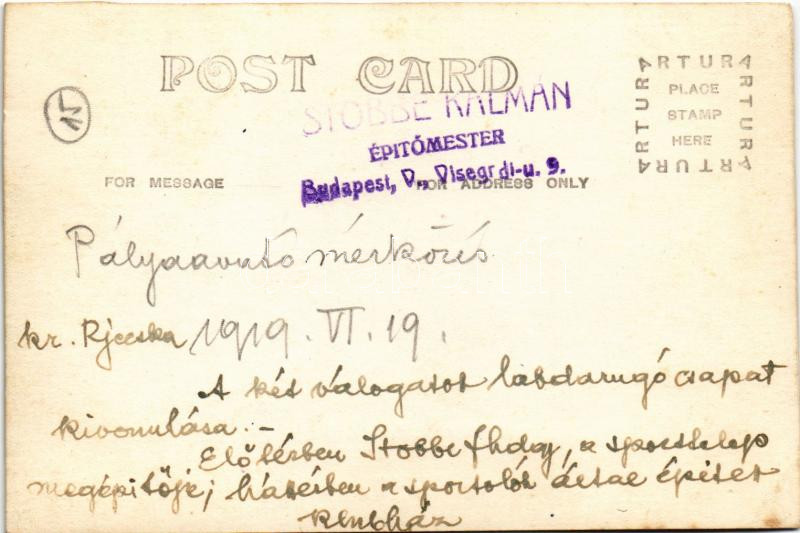 POST CARD
ARTURA
ARTURA
ARTURA
ARTURA
PLACE
STAMP
HERE
STOBBE KÁLMÁN
ÉPITŐMESTER
Budapest, V., Visegrdi-u. 9.
FOR MESSAGE
FOR ADDRESS ONLY
Pályaavató mérkőzés
kr. Rjecska 1919. VI. 19.
A két válogatot labdarugó csapat
kivonulása. -
Előtérben Stobbe, a sporttelep
megépitője; háttérben a sportolók által épitet
klubház